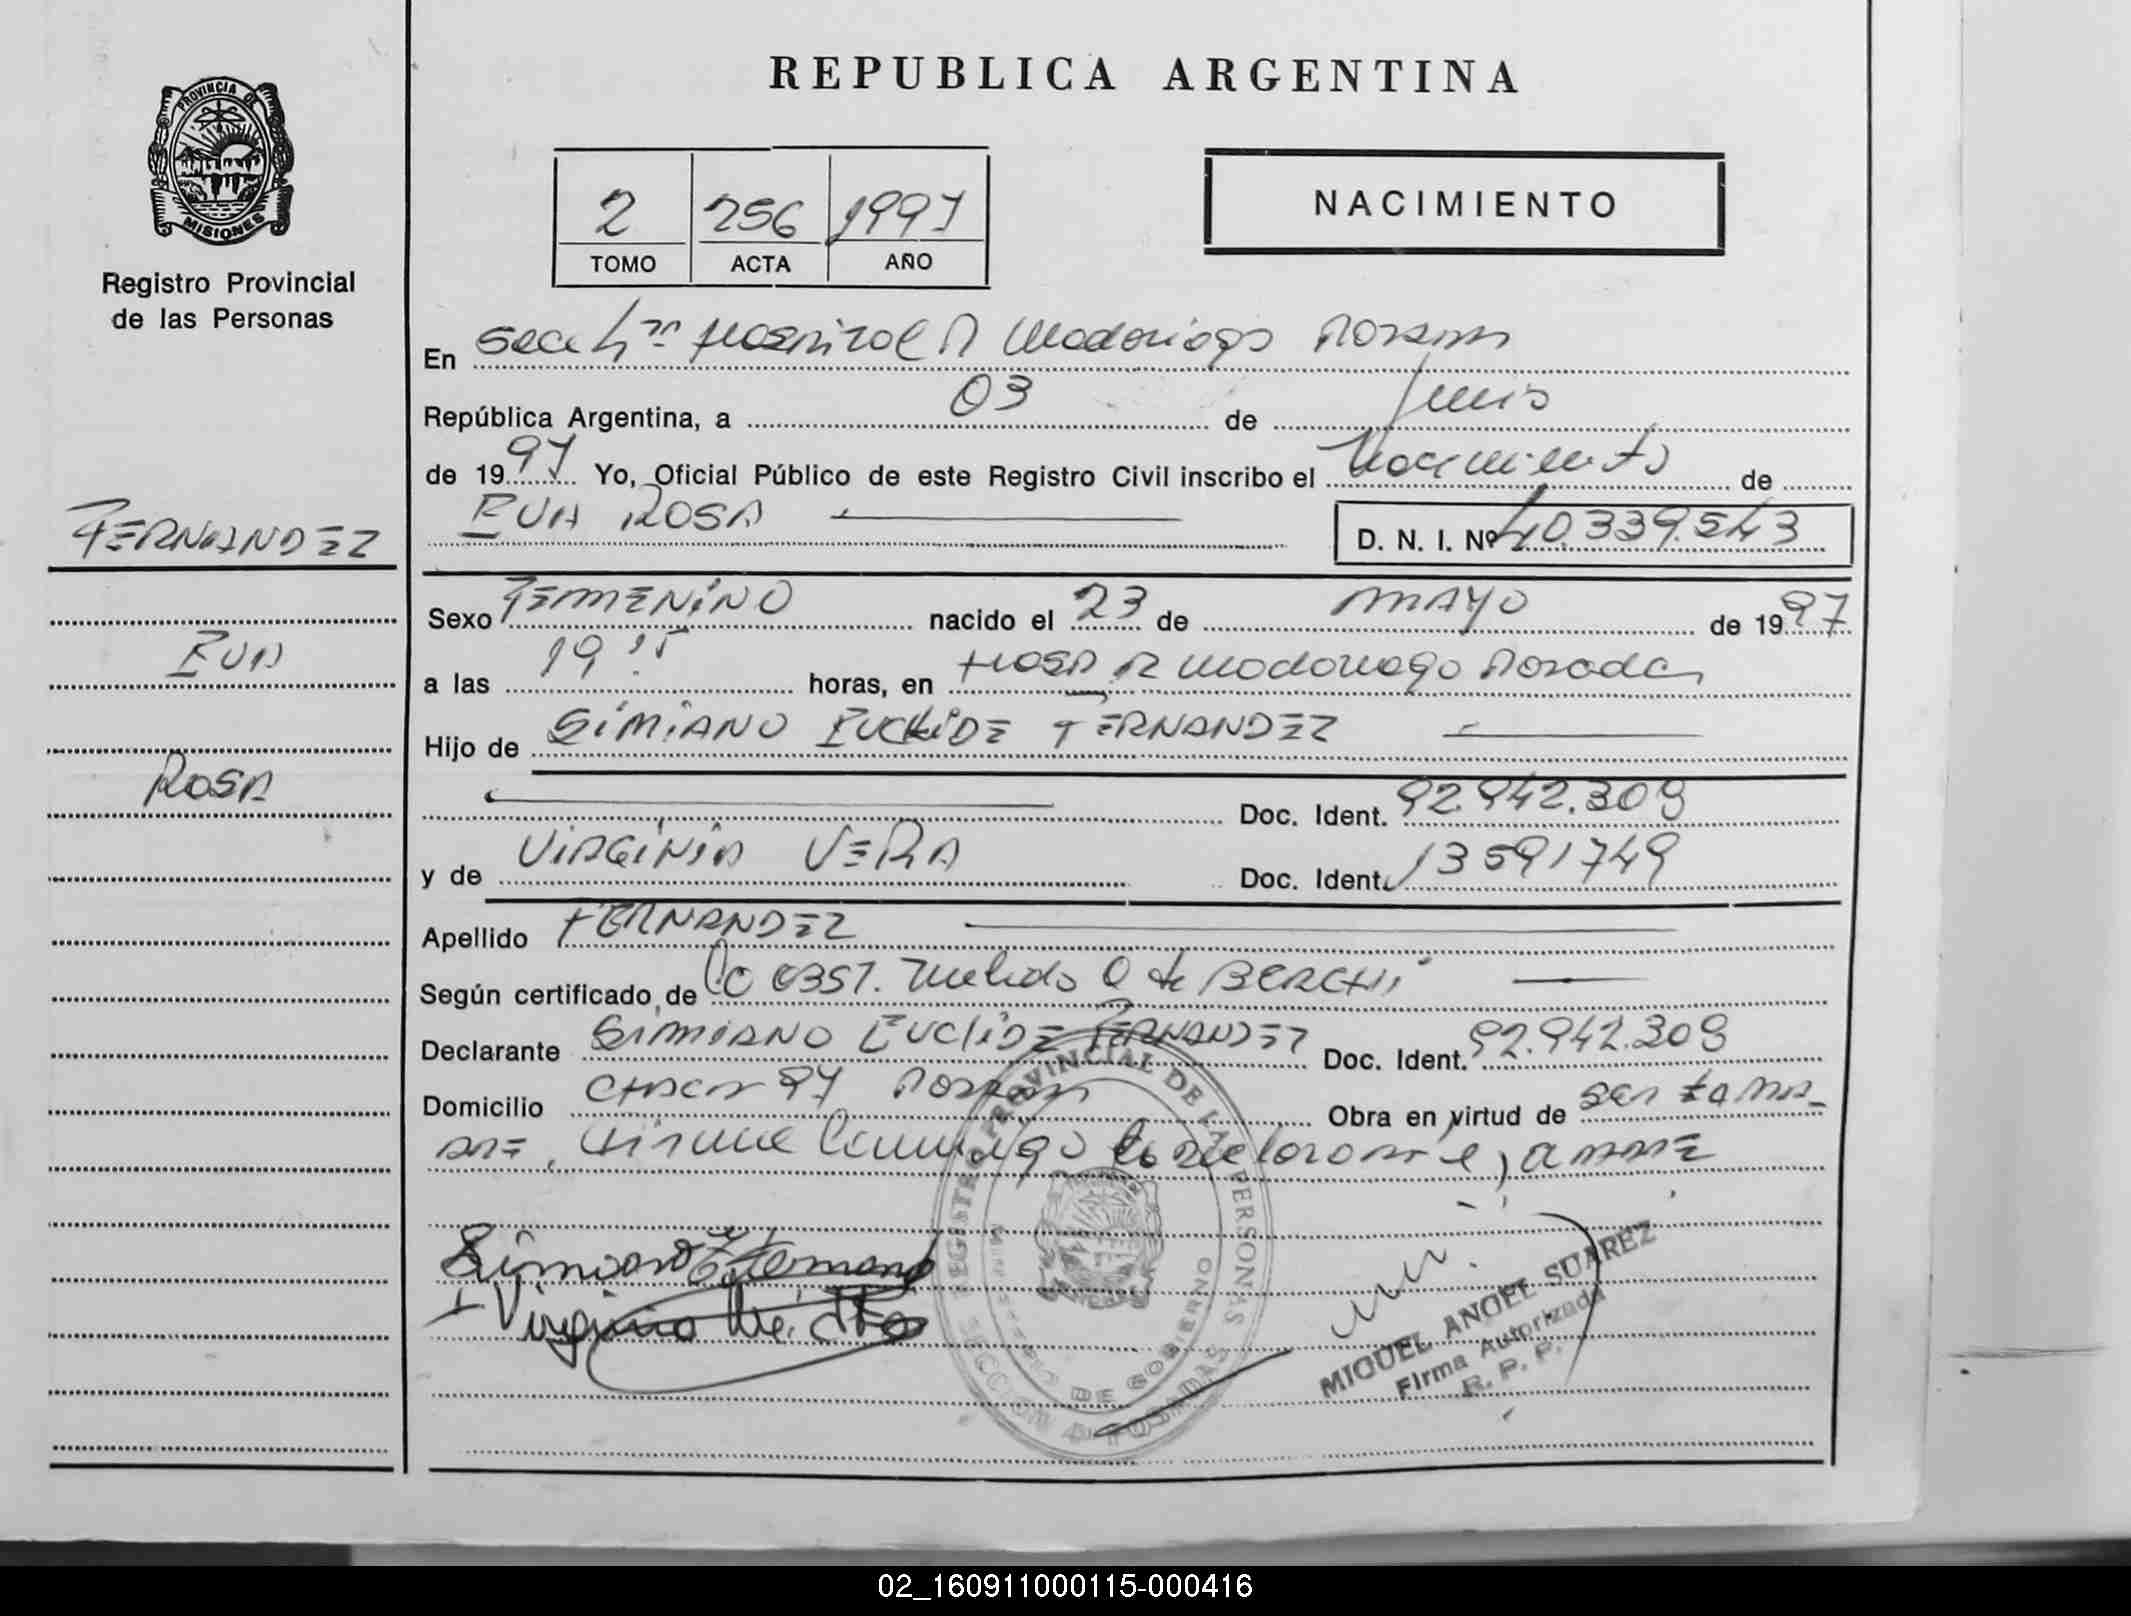 REPUBLICA ARGENTINA
PROVINCIA DE
MISIONES
Registro Provincial
de las Personas
2 256 1997
TOMO ACTA AÑO
NACIMIENTO
En Secc 4ª Hospital R Madariaga Posadas
República Argentina, a 03 de Junio
de 1997 Yo, Oficial Público de este Registro Civil inscribo el Nacimiento de
EVA ROSA
D. N. I. Nº 40.339.543
FERNANDEZ
EVA
ROSA
Sexo FEMENINO nacido el 23 de MAYO de 1997
a las 19 15 horas, en Hosp R Madariaga Posadas
Hijo de SIMIANO EUCLIDE FERNANDEZ
Doc. Ident. 92.942.309
y de VIRGINIA VERA Doc. Ident. 13591749
Apellido FERNANDEZ
Según certificado de Obst. de BERCHI
Declarante SIMIANO EUCLIDE FERNANDEZ Doc. Ident. 92.942.309
Domicilio 97 Posadas Obra en virtud de ser
firma conmigo el declarante y
REGISTRO PROVINCIAL DE LAS PERSONAS
MINISTERIO DE GOBIERNO
SECCION 4 POSADAS
MIGUEL ANGEL SUAREZ
Firma Autorizada
R. P. P.
02_160911000115-000416